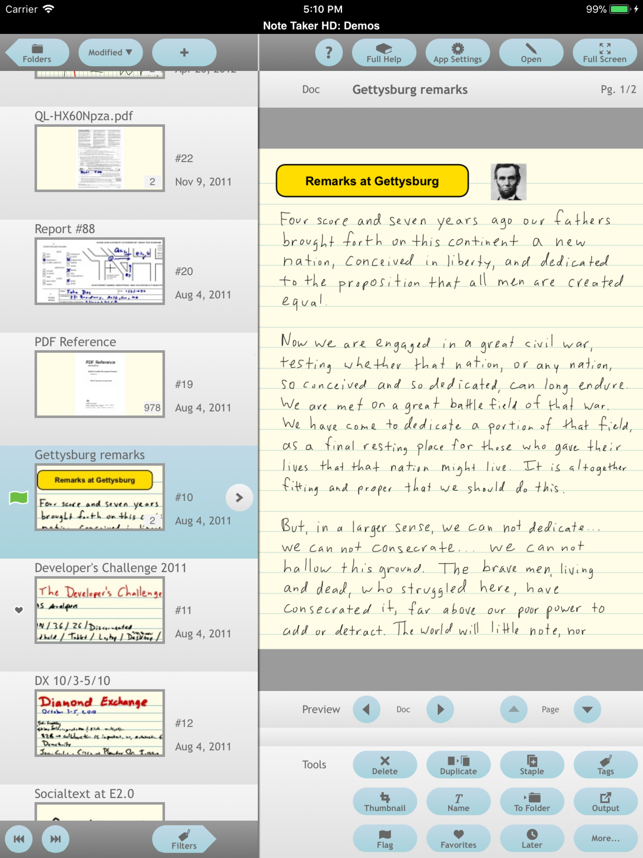 Carrier 5:10 PM 99%
Note Taker HD: Demos
Folders Modified ▼ + ? Full Help App Settings Open Full Screen
Apr 28, 2012
Doc Gettysburg remarks Pg. 1/2
QL-HX60Npza.pdf
2
#22
Nov 9, 2011
Report #88
#20
Aug 4, 2011
PDF Reference
PDF Reference
978
#19
Aug 4, 2011
Gettysburg remarks
Remarks at Gettysburg
Four score and seven years
brought forth on this c
nation, conceived in libert
2
#10
Aug 4, 2011
Developer's Challenge 2011
The Developer's Challenge
#11
Aug 4, 2011
DX 10/3-5/10
Diamond Exchange
October 3-5, 2010
#12
Aug 4, 2011
Socialtext at E2.0
Filters
Remarks at Gettysburg
Four score and seven years ago our fathers
brought forth on this continent a new
nation, conceived in liberty, and dedicated
to the proposition that all men are created
equal.
Now we are engaged in a great civil war,
testing whether that nation, or any nation,
so conceived and so dedicated, can long endure.
We are met on a great battle field of that war.
We have come to dedicate a portion of that field,
as a final resting place for those who gave their
lives that that nation might live. It is altogether
fitting and proper that we should do this.
But, in a larger sense, we can not dedicate...
we can not consecrate... we can not
hallow this ground. The brave men, living
and dead, who struggled here, have
consecrated it, far above our poor power to
add or detract. The world will little note, nor
Preview Doc Page
Tools
Delete Duplicate Staple Tags
Thumbnail Name To Folder Output
Flag Favorites Later More...